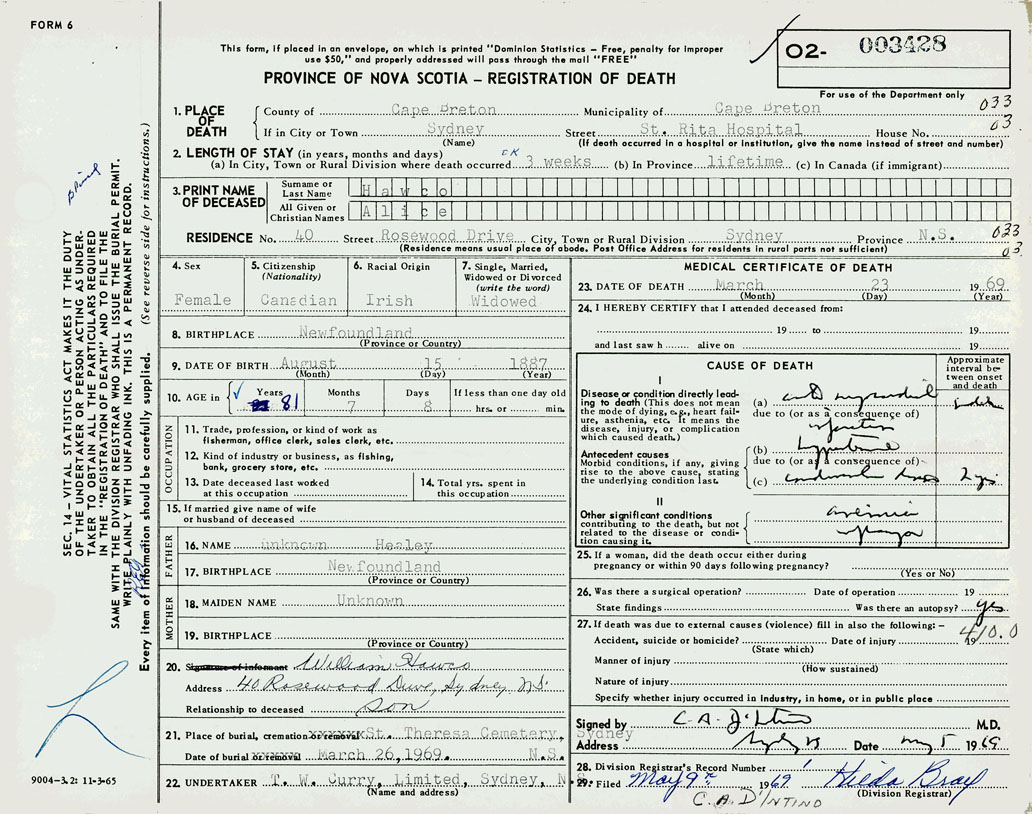 FORM 6
This form, if placed in an envelope, on which is printed "Dominion Statistics – Free, penalty for improper
use $50," and properly addressed will pass through the mail "FREE"
PROVINCE OF NOVA SCOTIA – REGISTRATION OF DEATH
O2- 003428
For use of the Department only
033
03
1. PLACE OF DEATH
County of Cape Breton Municipality of Cape Breton
If in City or Town Sydney Street St. Rita Hospital House No.
(Name) (If death occurred in a hospital or institution, give the name instead of street and number)
2. LENGTH OF STAY (in years, months and days)
(a) In City, Town or Rural Division where death occurred 3 weeks (b) In Province lifetime (c) In Canada (if immigrant)
3. PRINT NAME OF DECEASED
Surname or Last Name Hawco
All Given or Christian Names Alice
RESIDENCE No. 40 Street Rosewood Drive City, Town or Rural Division Sydney Province N.S.
(Residence means usual place of abode. Post Office Address for residents in rural parts not sufficient)
033
03
4. Sex
Female
5. Citizenship
(Nationality)
Canadian
6. Racial Origin
Irish
7. Single, Married,
Widowed or Divorced
(write the word)
Widowed
8. BIRTHPLACE Newfoundland
(Province or Country)
9. DATE OF BIRTH August 15 1887
(Month) (Day) (Year)
10. AGE in Years 81 Months 7 Days 8 If less than one day old
hrs. or min.
OCCUPATION
11. Trade, profession, or kind of work as
fisherman, office clerk, sales clerk, etc.
12. Kind of industry or business, as fishing,
bank, grocery store, etc.
13. Date deceased last worked
at this occupation
14. Total yrs. spent in
this occupation
15. If married give name of wife
or husband of deceased
FATHER
16. NAME unknown Healey
17. BIRTHPLACE Newfoundland
(Province or Country)
MOTHER
18. MAIDEN NAME Unknown
19. BIRTHPLACE
(Province or Country)
20. Signature of informant William Hawco
Address 40 Rosewood Drive, Sydney N.S.
Relationship to deceased son
21. Place of burial, cremation or removal St. Theresa Cemetery,
Sydney
Date of burial or removal March 26, 1969. N.S.
22. UNDERTAKER T. W. Curry, Limited, Sydney, N.S.
(Name and address)
MEDICAL CERTIFICATE OF DEATH
23. DATE OF DEATH March 23 1969
(Month) (Day) (Year)
24. I HEREBY CERTIFY that I attended deceased from:
19 to 19
and last saw h alive on 19
CAUSE OF DEATH
Approximate
interval be-
tween onset
and death
I
Disease or condition directly lead-
ing to death (This does not mean
the mode of dying, e.g., heart fail-
ure, asthenia, etc. It means the
disease, injury, or complication
which caused death.)
(a) myocardial
due to (or as a consequence of)
infarction
Antecedent causes
Morbid conditions, if any, giving
rise to the above cause, stating
the underlying condition last.
(b)
due to (or as a consequence of)
(c) 2 yrs
II
Other significant conditions
contributing to the death, but not
related to the disease or condi-
tion causing it.
25. If a woman, did the death occur either during
pregnancy or within 90 days following pregnancy?
(Yes or No)
26. Was there a surgical operation? Date of operation 19
State findings Was there an autopsy? yes
27. If death was due to external causes (violence) fill in also the following: – 410.0
Accident, suicide or homicide? Date of injury 19
(State which)
Manner of injury
(How sustained)
Nature of injury
Specify whether injury occurred in industry, in home, or in public place
Signed by C. A. D'Intino M.D.
Address Sydney NS Date May 5 1969
28. Division Registrar's Record Number
29. Filed May 9th 1969 Hilda Bray
(Division Registrar)
C.A. D'INTINO
SEC. 14 – VITAL STATISTICS ACT MAKES IT THE DUTY
OF THE UNDERTAKER OR PERSON ACTING AS UNDER-
TAKER TO OBTAIN ALL THE PARTICULARS REQUIRED
IN THE "REGISTRATION OF DEATH" AND TO FILE THE
SAME WITH THE DIVISION REGISTRAR WHO SHALL ISSUE THE BURIAL PERMIT.
WRITE PLAINLY WITH UNFADING INK. THIS IS A PERMANENT RECORD.
Every item of information should be carefully supplied. (See reverse side for instructions.)
9004-3.2: 11-3-65